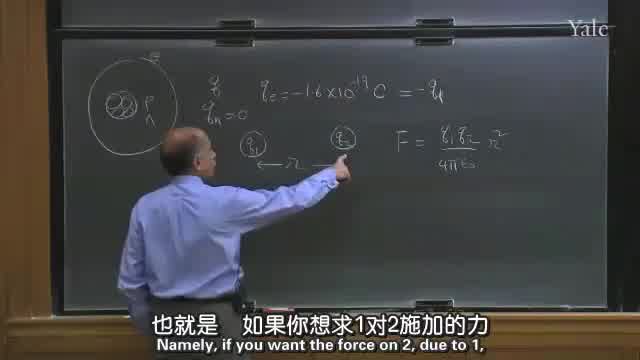 Yale
e
q qₑ = -1.6 × 10⁻¹⁹ C = -qₚ
p qₙ = 0
n
q₁ q₂ F = q₁q₂ / 4πε₀ r²
← r —
也就是 如果你想求1对2施加的力
Namely, if you want the force on 2, due to 1,